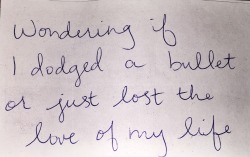 Wondering if
I dodged a bullet
or just lost the
love of my life